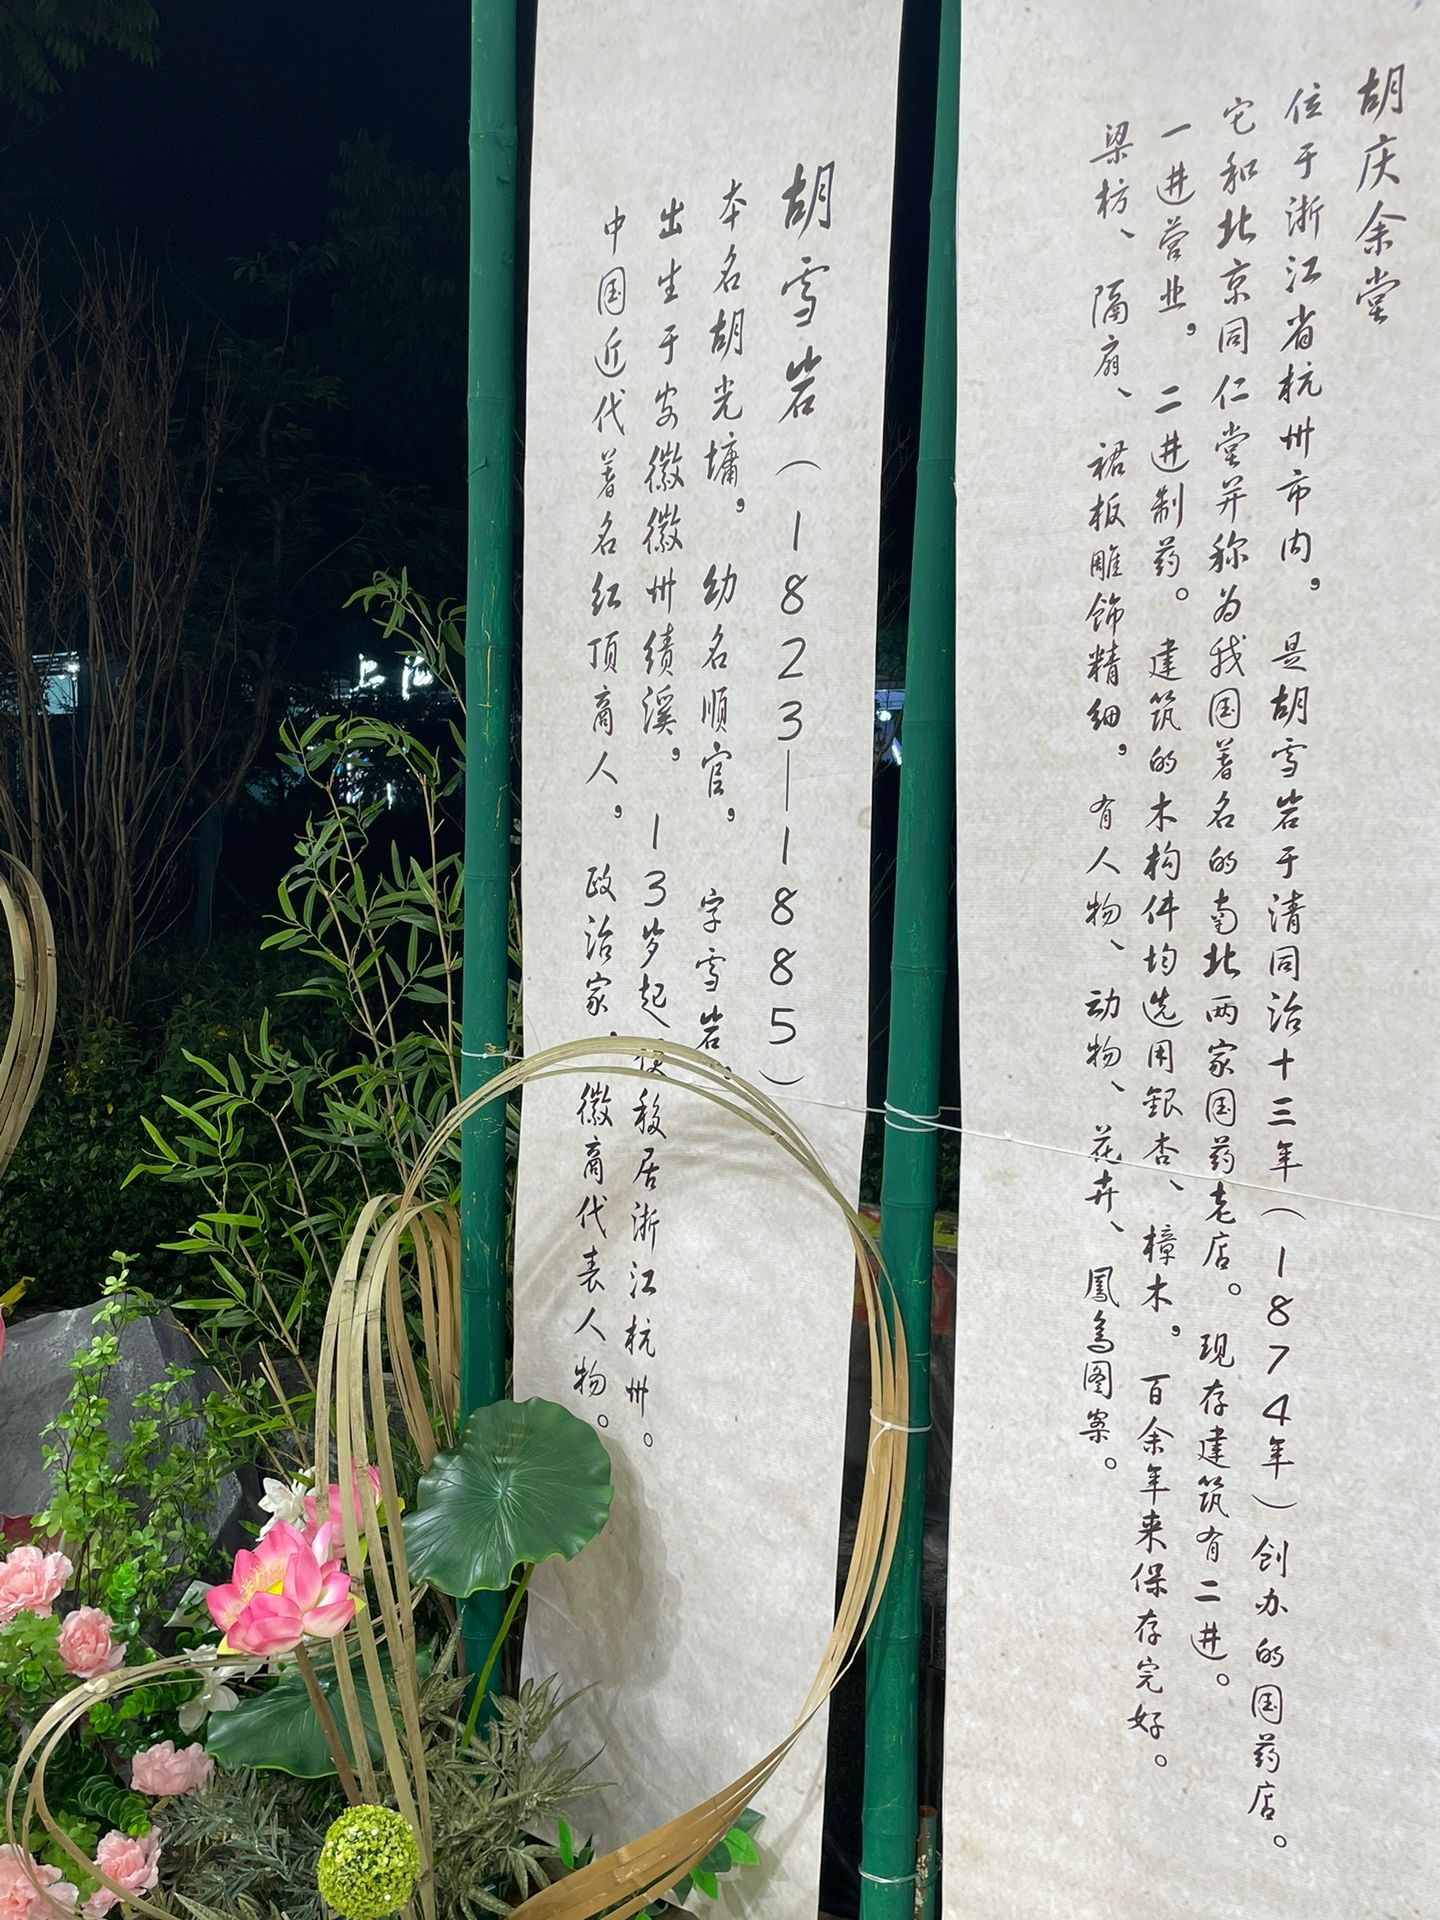 胡庆余堂
位于浙江省杭州市内，是胡雪岩于清同治十三年（1874年）创办的国药店。
它和北京同仁堂并称为我国著名的南北两家国药老店。现存建筑有二进。
一进营业，二进制药。建筑的木构件均选用银杏、樟木，百余年来保存完好。
梁枋、隔扇、裙板雕饰精细，有人物、动物、花卉、凤鸟图案。
胡雪岩（1823—1885）
本名胡光墉，幼名顺官，字雪岩，
出生于安徽徽州绩溪，13岁起便移居浙江杭州。
中国近代著名红顶商人，政治家，徽商代表人物。